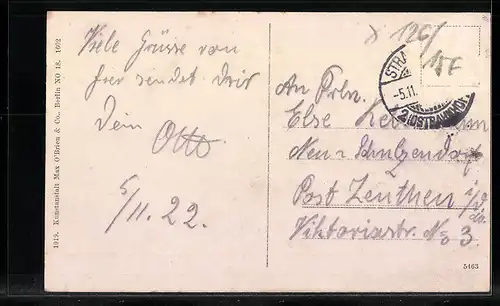 Viele Grüsse von
hier sendet Dir
Dein Otto
5/11.22.
1919. Kunstanstalt Max O'Brien & Co., Berlin NO 18. 1602
126/
15F
STRA
-5.11.
2 (OSTBAHNHOF)
An Frln.
Else
Neu-Schulzendorf
Post Zeuthen
Viktoriastr. No 3.
5463